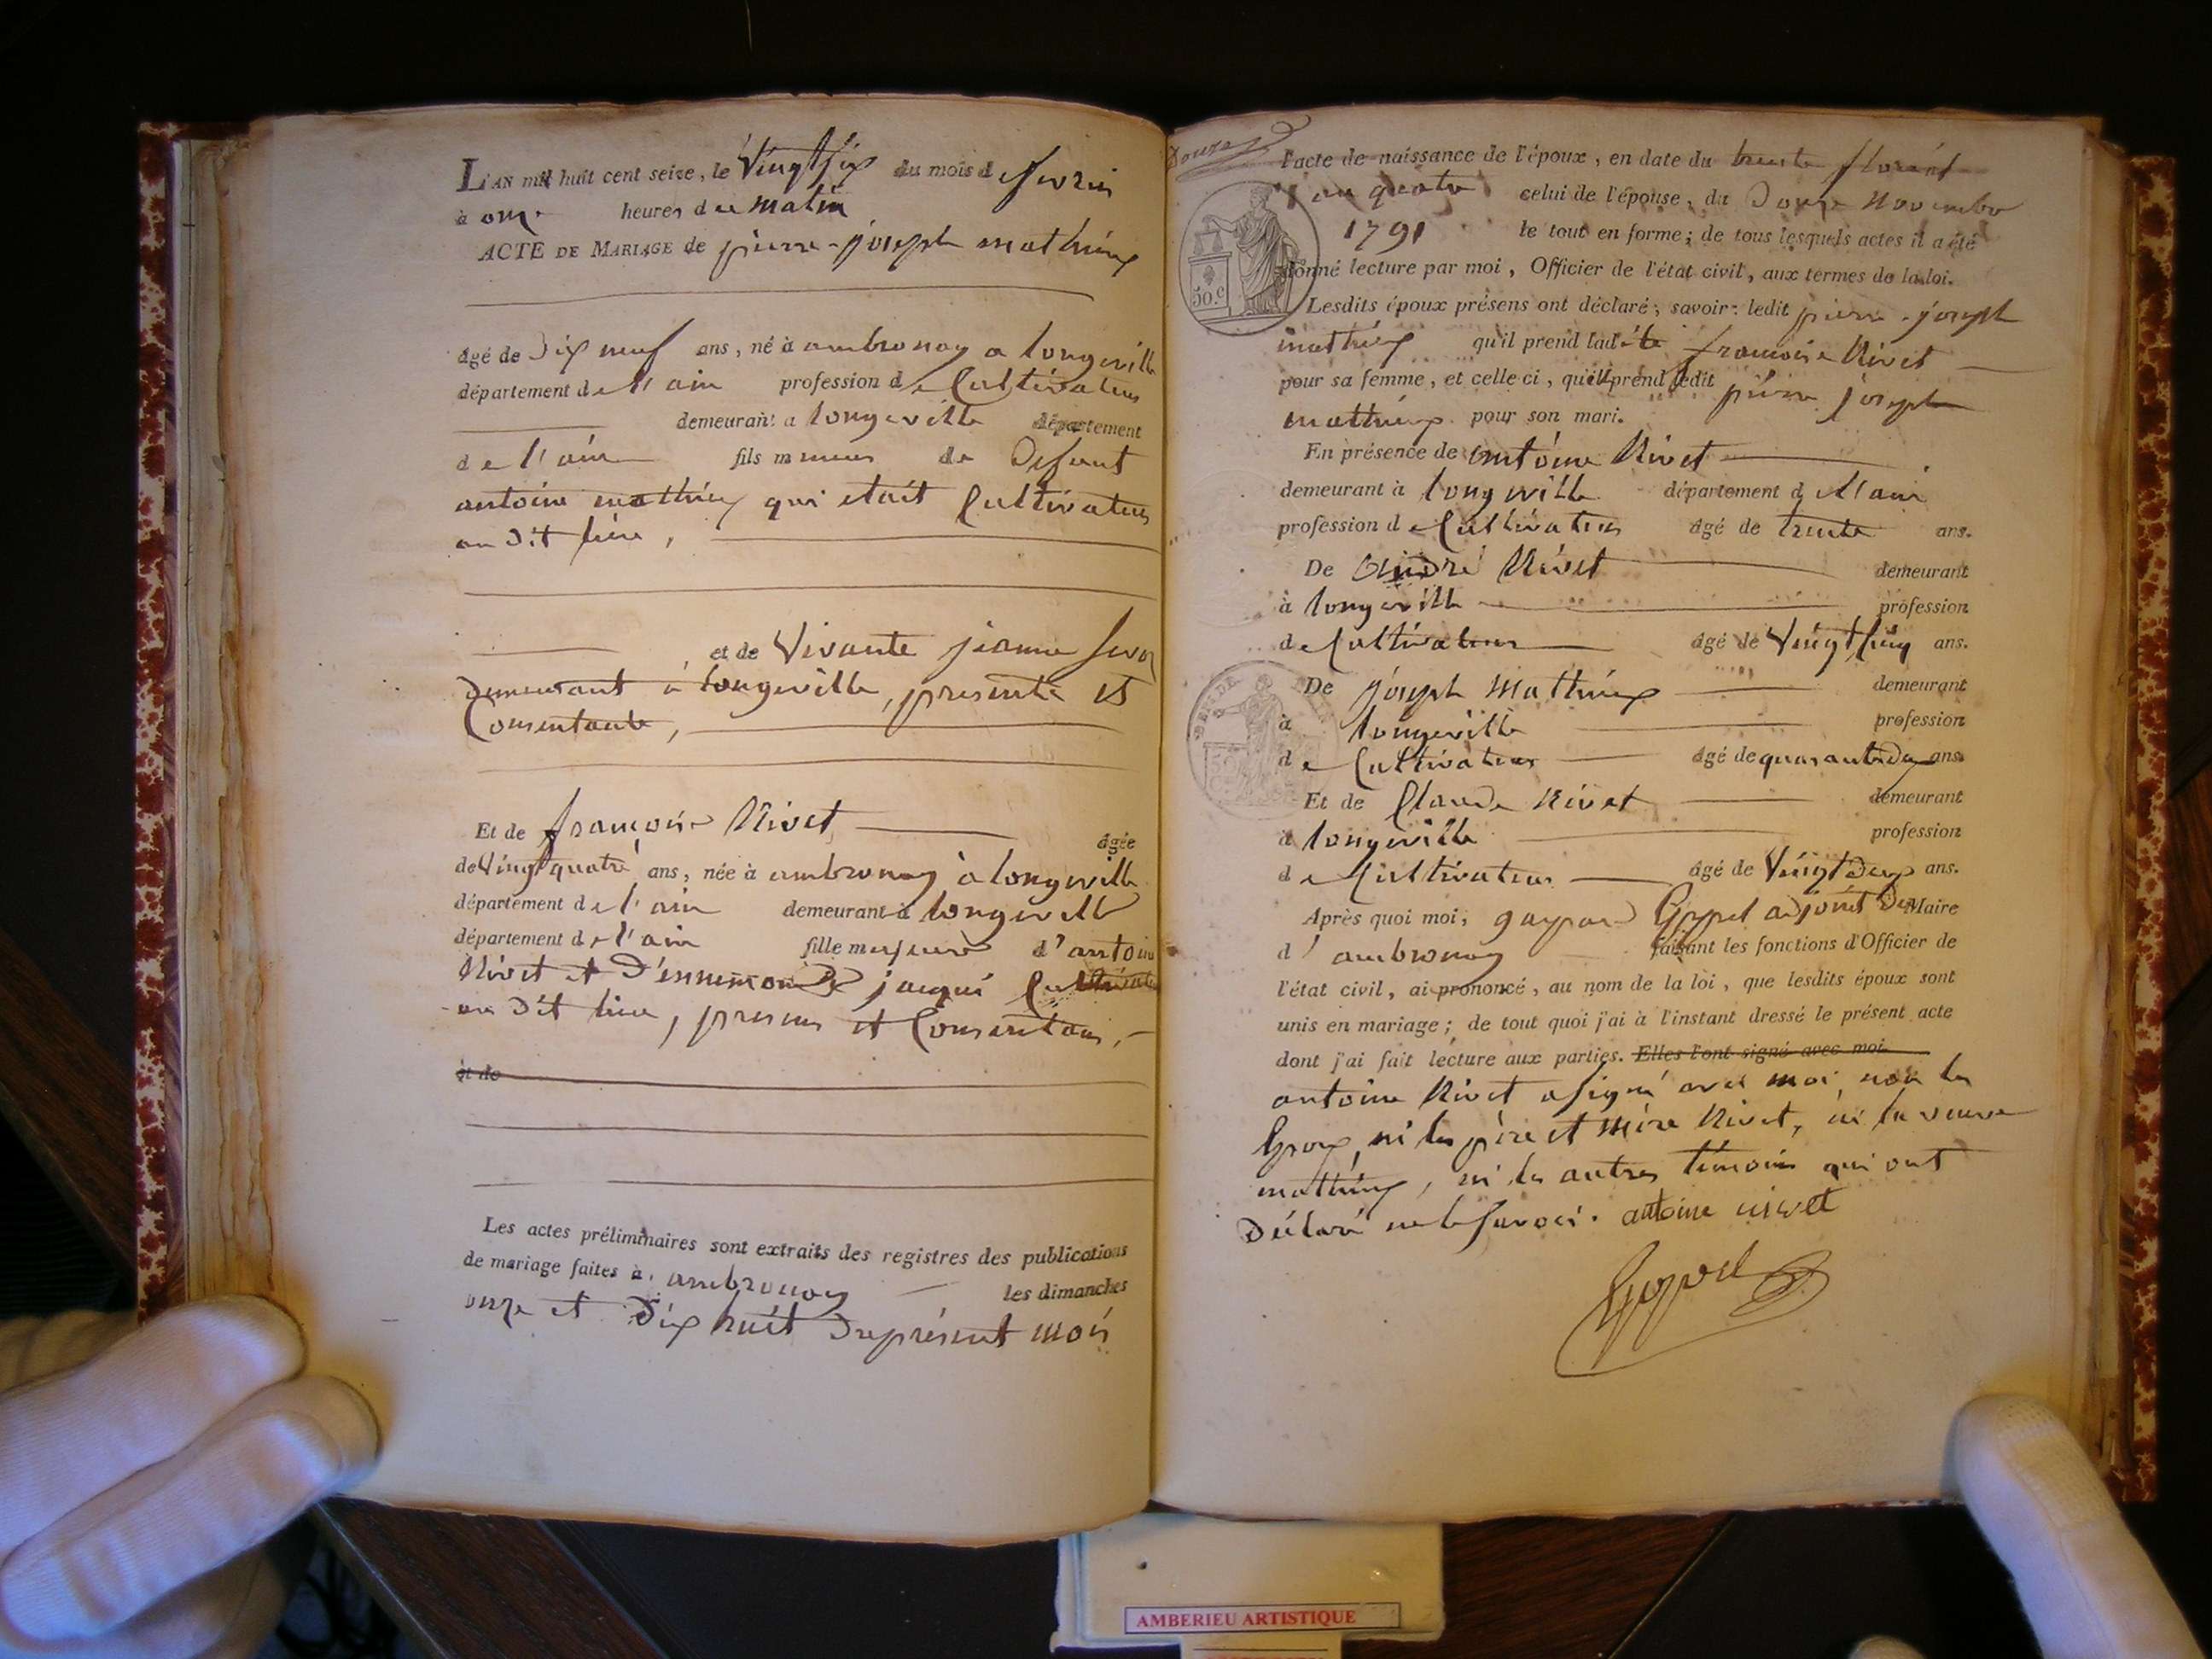 L'AN mil huit cent seize, le Vingt six du mois de fevrier
à onze heures du matin
ACTE DE MARIAGE de pierre-joseph mathieux
âgé de Dix neuf ans, né à ambronay a longeville
département de l'ain profession de Cultivateur
demeurant a longeville département
de l'ain fils mineur de Defunt
antoine mathieux qui etait Cultivateur
au Dit lieu,
et de Vivante jeanne
Demeurant à longeville, presente et
Consentante,
Et de françoise Nivet âgée
de Vingt quatre ans, née à ambronay à longeville
département de l'ain demeurant à longeville
département de l'ain fille majeure d'antoine
Nivet et D'ennemonde jacqui Cultivateurs
au Dit lieu, presens et Consentans,
et de
Les actes préliminaires sont extraits des registres des publications
de mariage faites à ambronay les dimanches
onze et Dix huit Du présent mois
Douze
l'acte de naissance de l'époux, en date du trente floréal
an quatre celui de l'épouse, du Douze Novembre
1791 le tout en forme; de tous lesquels actes il a été
donné lecture par moi, Officier de l'état civil, aux termes de la loi.
50.c
Lesdits époux présens ont déclaré, savoir: ledit pierre-joseph
mathieux qu'il prend ladite françoise Nivet
pour sa femme, et celle ci, qu'elle prend ledit pierre joseph
mathieux pour son mari.
En présence de antoine Nivet
demeurant à longeville département de l'ain
profession de Cultivateur âgé de trente ans.
De André Nivet demeurant
à longeville profession
de Cultivateur âgé de Vingt cinq ans.
De joseph Mathieux demeurant
à longeville profession
de Cultivateur âgé de quarante Deux ans.
Et de Claude Nivet demeurant
à longeville profession
de Cultivateur âgé de Vingt Deux ans.
Après quoi moi, gaspard adjoint Du Maire
d'ambronay faisant les fonctions d'Officier de
l'état civil, ai prononcé, au nom de la loi, que lesdits époux sont
unis en mariage; de tout quoi j'ai à l'instant dressé le présent acte
dont j'ai fait lecture aux parties. Elles l'ont signé avec moi.
antoine Nivet a signé avec moi, non les
Epoux, ni les père et mère Nivet, ni la veuve
mathieux, ni les autres témoins qui ont
Déclaré ne le savoir. antoine nivet
AMBERIEU ARTISTIQUE